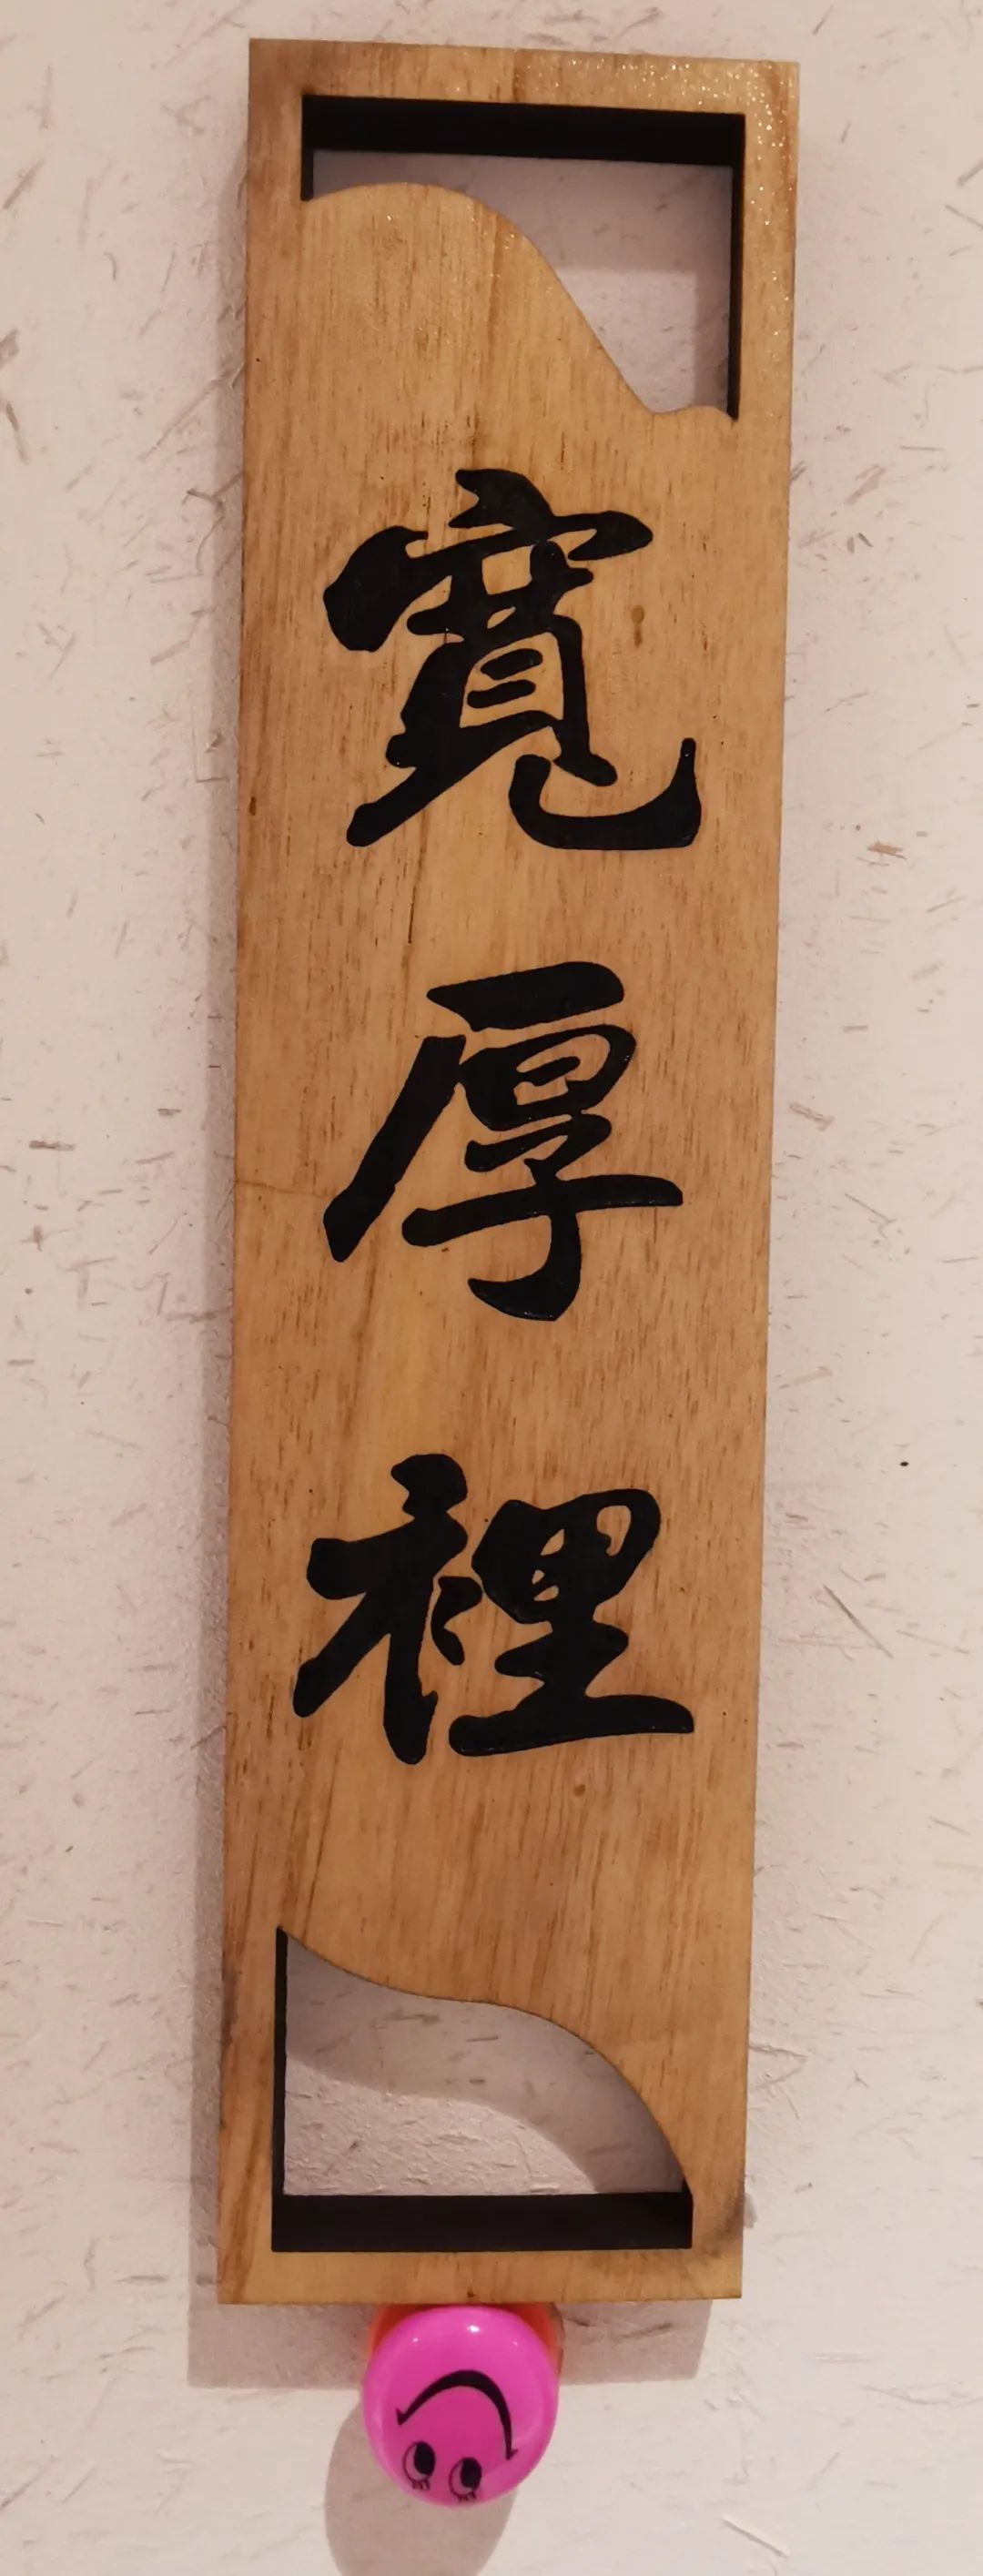 寬厚裡